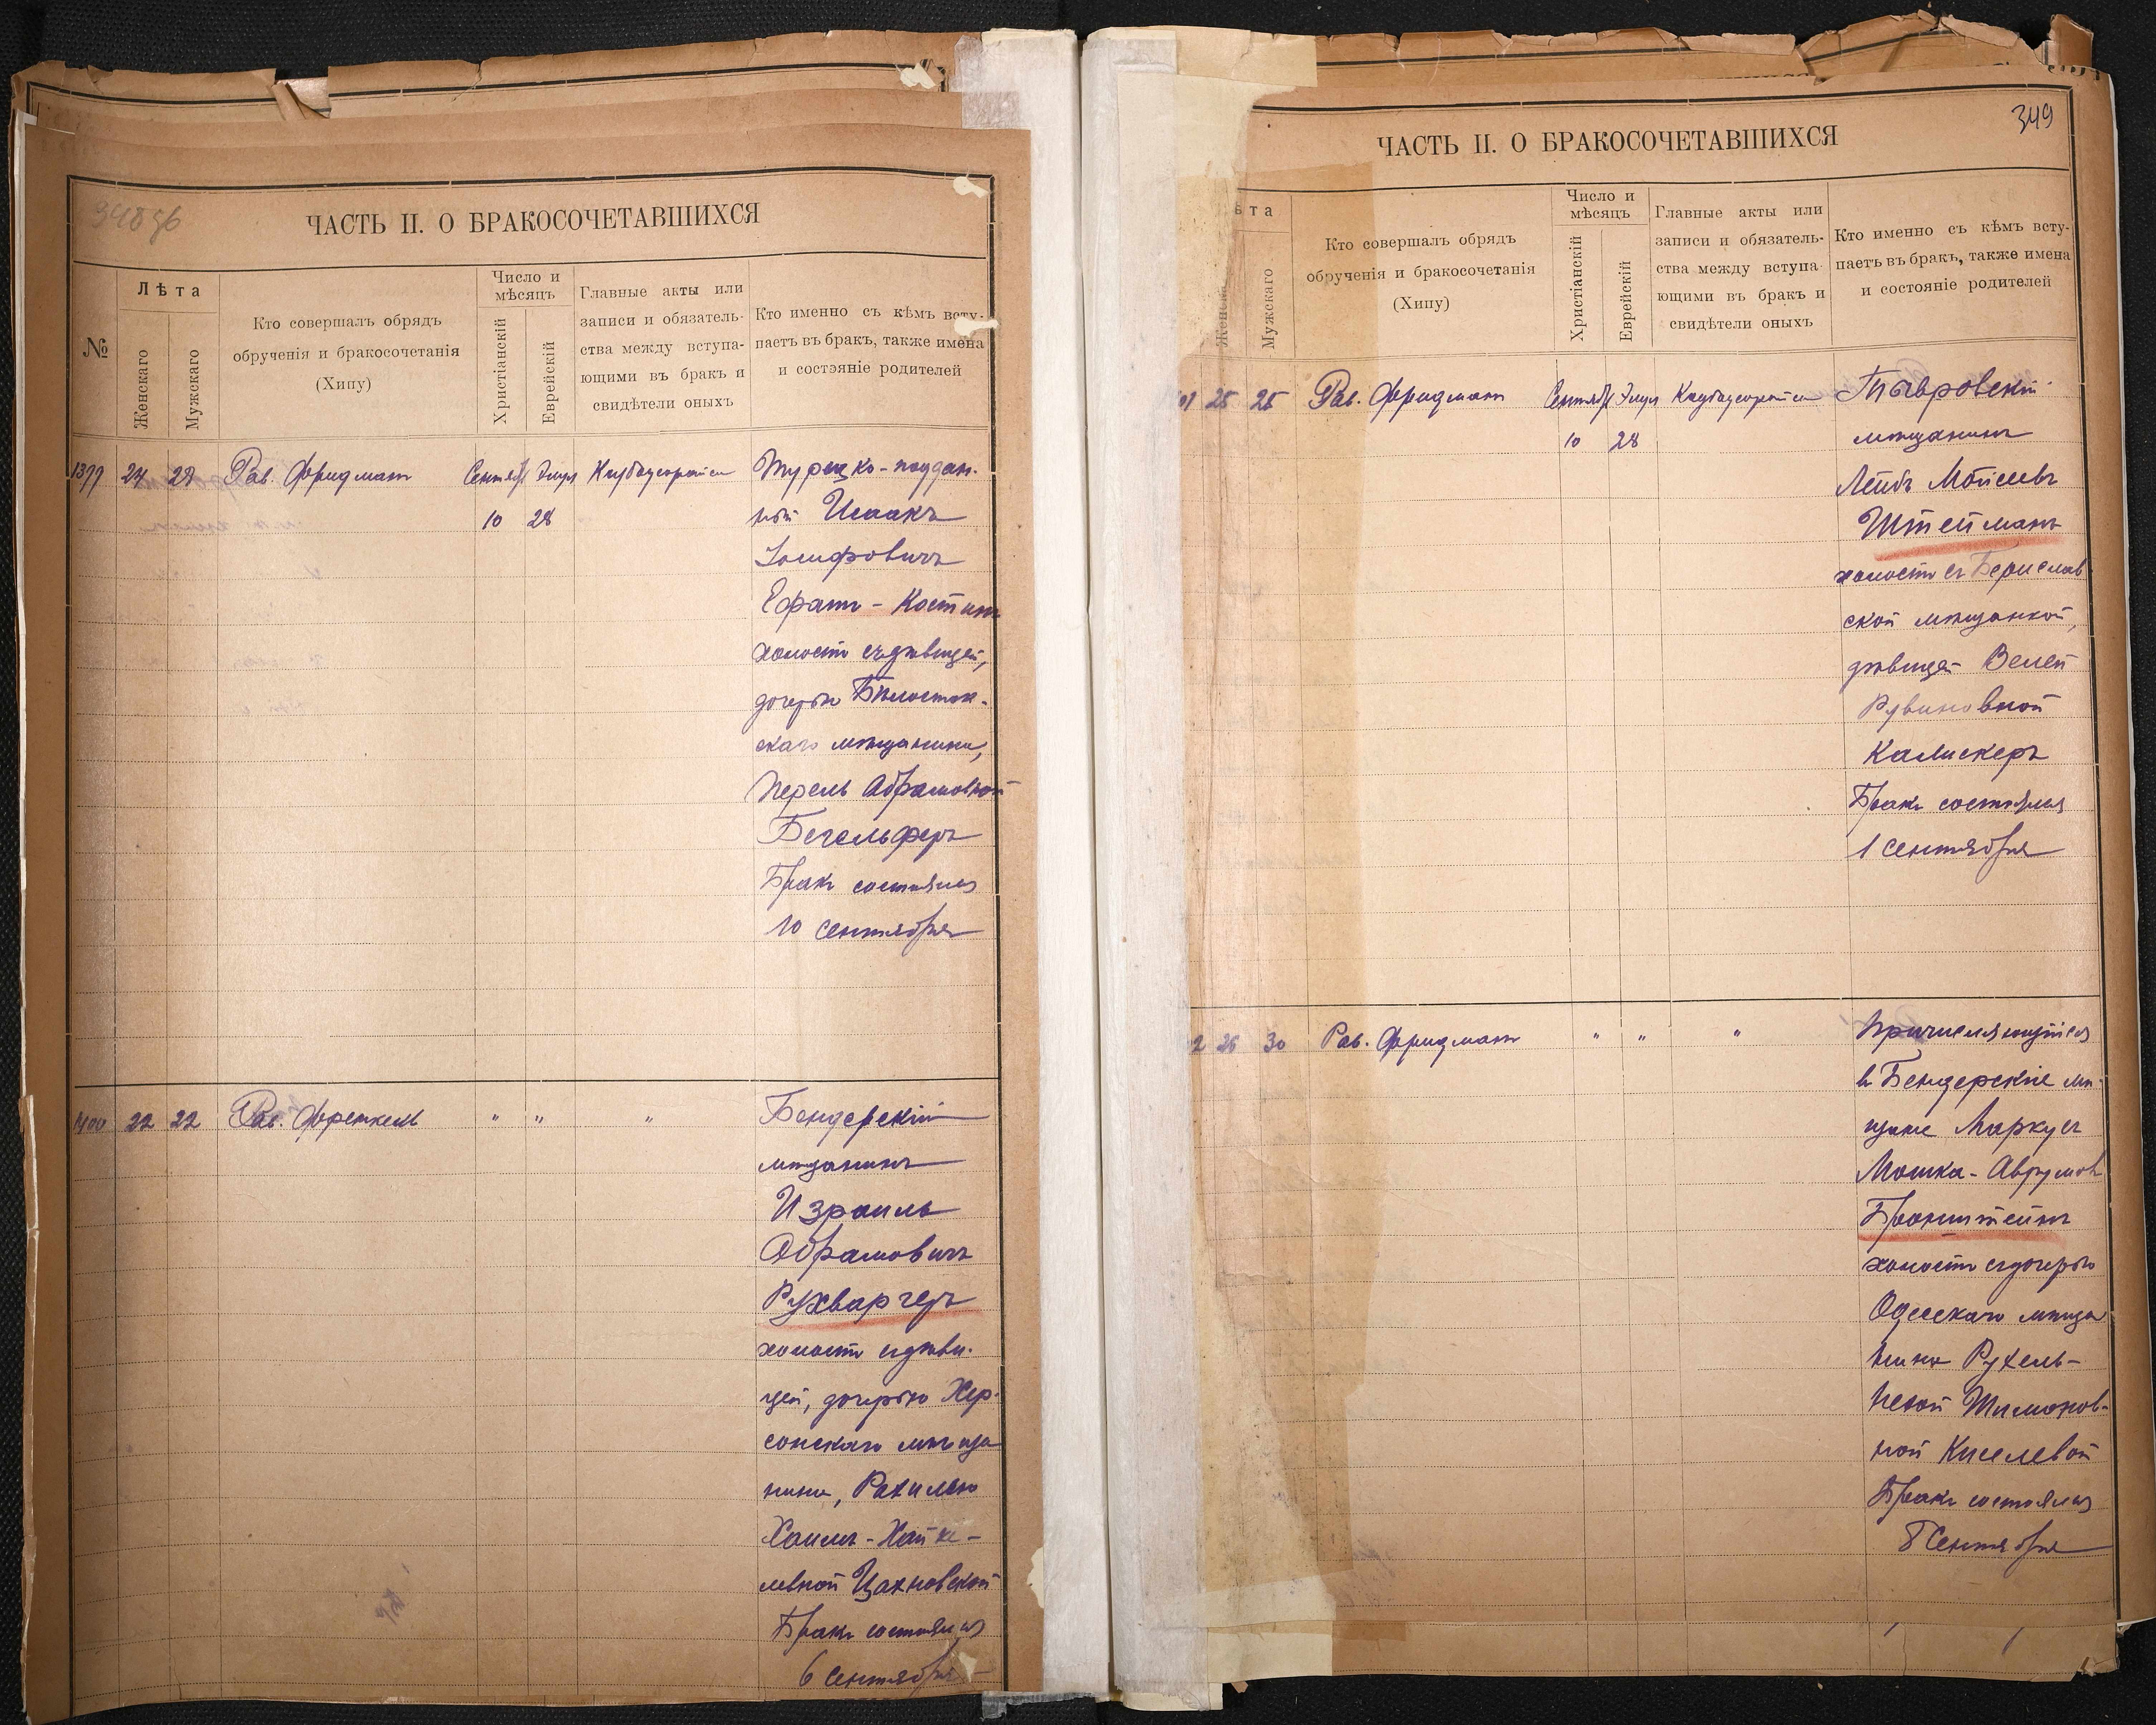 348 об
ЧАСТЬ II. О БРАКОСОЧЕТАВШИХСЯ
№
Лѣта
Женскаго
Мужскаго
Кто совершалъ обрядъ
обрученія и бракосочетанія
(Хипу)
Число и
мѣсяцъ
Христіанскій
Еврейскій
Главные акты или
записи и обязатель-
ства между вступа-
ющими въ бракъ и
свидѣтели оныхъ
Кто именно съ кѣмъ всту-
паетъ въ бракъ, также имена
и состояніе родителей
1399 24 28 Рав. Фридманъ Сентяб Элул
10 28
Турецко-поддан-
ный Исаакъ
Іосифовичъ
Ефратъ-Костинъ
холостъ съ дѣвицей,
дочерью Бѣлосток-
скаго мѣщанина,
Перель Абрамовной
Бегельферъ
Бракъ состоялся
10 Сентября
1400 22 22 Рав. Френкель " " "
Бендерскій
мѣщанинъ
Израиль
Абрамовичъ
Рухваргеръ
холостъ съ дѣви-
цей, дочерью Хер-
сонскаго мѣща
нина, Рахилью
Хаимъ-
Цахновской
Бракъ состоялся
6 Сентября
349
ЧАСТЬ II. О БРАКОСОЧЕТАВШИХСЯ
ѣта
Женска
Мужскаго
Кто совершалъ обрядъ
обрученія и бракосочетанія
(Хипу)
Число и
мѣсяцъ
Христіанскій
Еврейскій
Главные акты или
записи и обязатель-
ства между вступа-
ющими въ бракъ и
свидѣтели оныхъ
Кто именно съ кѣмъ всту-
паетъ въ бракъ, также имена
и состояніе родителей
01 25 25 Рав. Фридманъ Сентяб Элул
10 28
мѣщанинъ
Лейбъ Мойсеевъ
Штейманъ
холостъ съ Берислав
ской мѣщанкой,
дѣвицей Велей
Рувиновной
Калискеръ
Бракъ состоялся
1 Сентября
2 26 30 Рав. Фридманъ " " "
Причисляющійся
въ Бендерскіе мѣ-
щане Маркусъ
Мошка-Аврумов
Бронштейнъ
холостъ съ дочерью
Одесскаго мѣща
нина Рухель-
Песей Шимонов-
ной Киселевой
Бракъ состоялся
8 Сентября